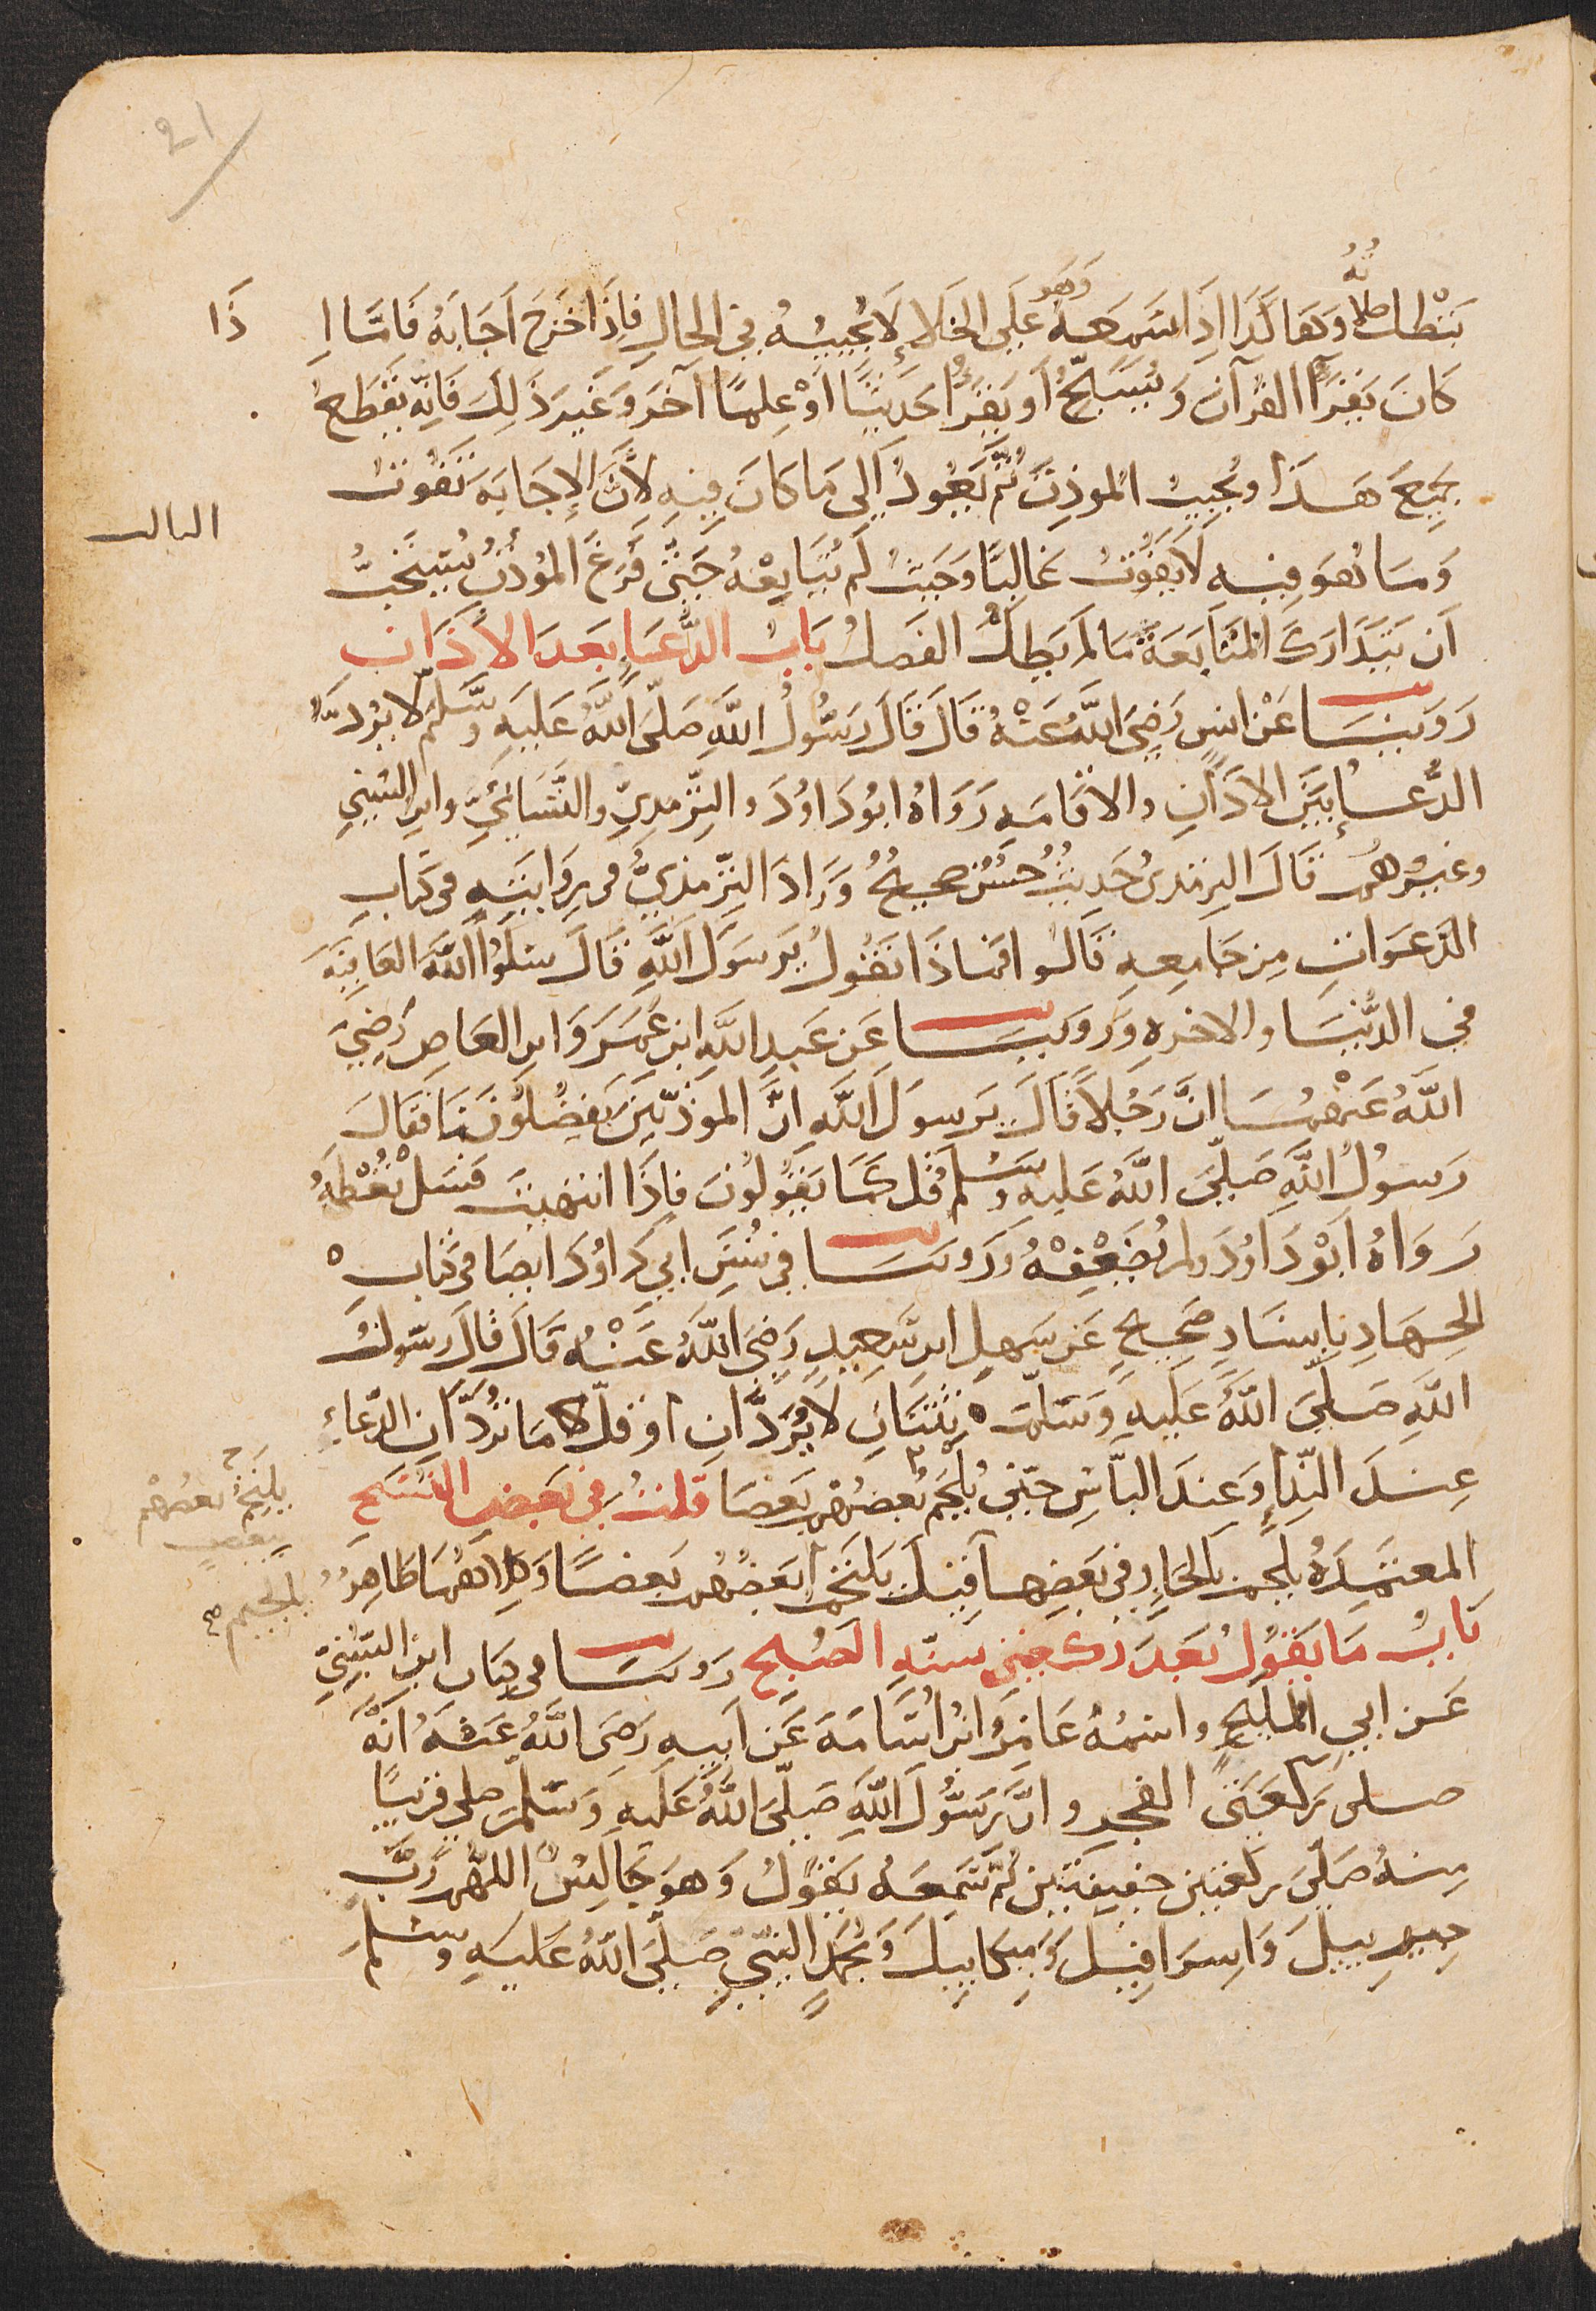 21
تبطل صلاته وهكذا اذا سمعه وهو على الخلاء لا يجيبه في الحال فاذا خرج اجابه فاما اذا
كان يقرأ القرآن ويسبح أو يقرأ حديثا أو علما آخر وغير ذلك فانه يقطع
جميع هذا ويجيب المؤذن ثم يعود الى ما كان فيه لأن الإجابة تفوت
وما هو فيه لا يفوت غالبا وحيث لم يتابعه حتى فرغ المؤذن يستحب
أن يتدارك المتابعة ما لم يطل الفصل باب الدعا بعد الأذان
روينا عن انس رضي الله عنه قال قال رسول الله صلى الله عليه وسلم لا يرد
الدعاء بين الاذان والاقامه رواه ابو داود والترمذي والنسائي وابن السني
وغيرهم قال الترمذي حديث حسن صحيح وزاد الترمذي في روايته في كتاب
الدعوات من جامعه قالوا فماذا نقول يرسول الله قال سلوا الله العافية
في الدنيا والاخره وروينا عن عبد الله ابن عمرو ابن العاص رضي
الله عنهما ان رجلا قال يرسول الله ان المؤذنين يفضلوننا فقال
رسول الله صلى الله عليه وسلم قل كما يقولون فاذا انتهيت فسل تعطه
رواه ابو داود ولم يضعفه وروينا في سنن ابي داود ايضا في كتاب
الجهاد باسناد صحيح عن سهل ابن سعد رضي الله عنه قال قال رسول
الله صلى الله عليه وسلم ثنتان لا يردان او قل ما تردان الدعاء
عند النداء وعند البأس حتى يلجم بعضهم بعضا قلت في بعض النسخ
يلتحم بعضهم
ببعض
المعتمده يلحم بالحاء وفي بعضها يلتحم بعضهم بعضا وكلاهما ظاهر
بالجيم
باب ما يقول بعد ركعتي سنة الصبح روينا في كتاب ابن السني
عن ابي المليح واسمه عامر ابن أسامة عن ابيه رضي الله عنه انه
صلى ركعتي الفجر وان رسول الله صلى الله عليه وسلم صلى قريبا
منه صلى ركعتين خفيفتين ثم سمعه يقول وهو جالس اللهم رب
جبرييل واسرافيل وميكاييل ومحمد النبي صلى الله عليه وسلم